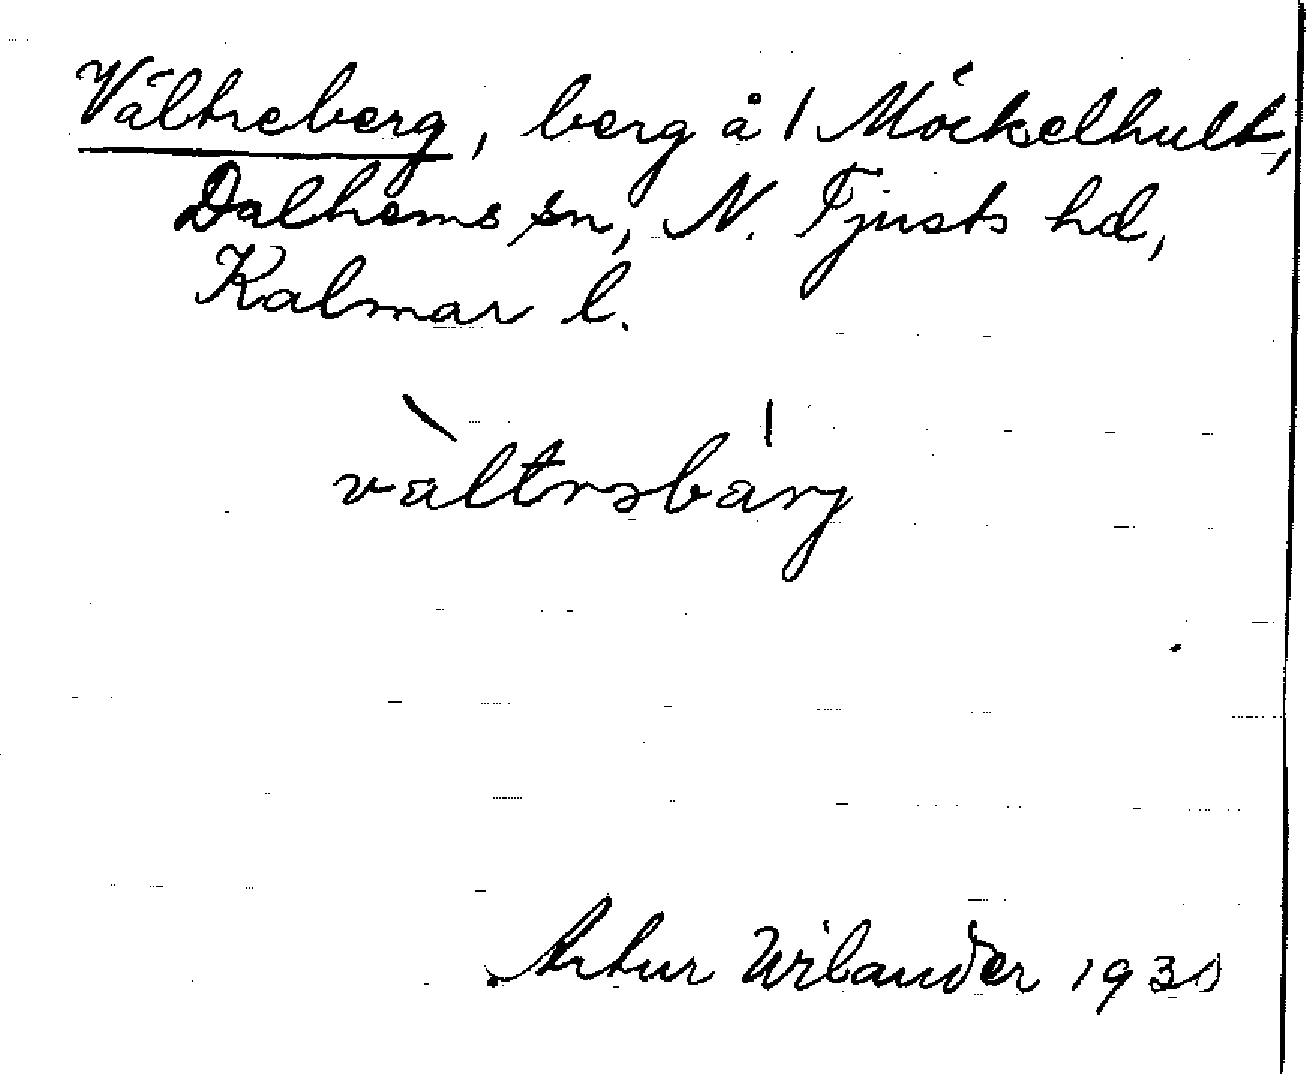 Vältreberg, berg å 1 Möckelhult,
Dalhems sn, N. Tjusts hd,
Kalmar l.
vältrəbärj
Artur Wilander 1930